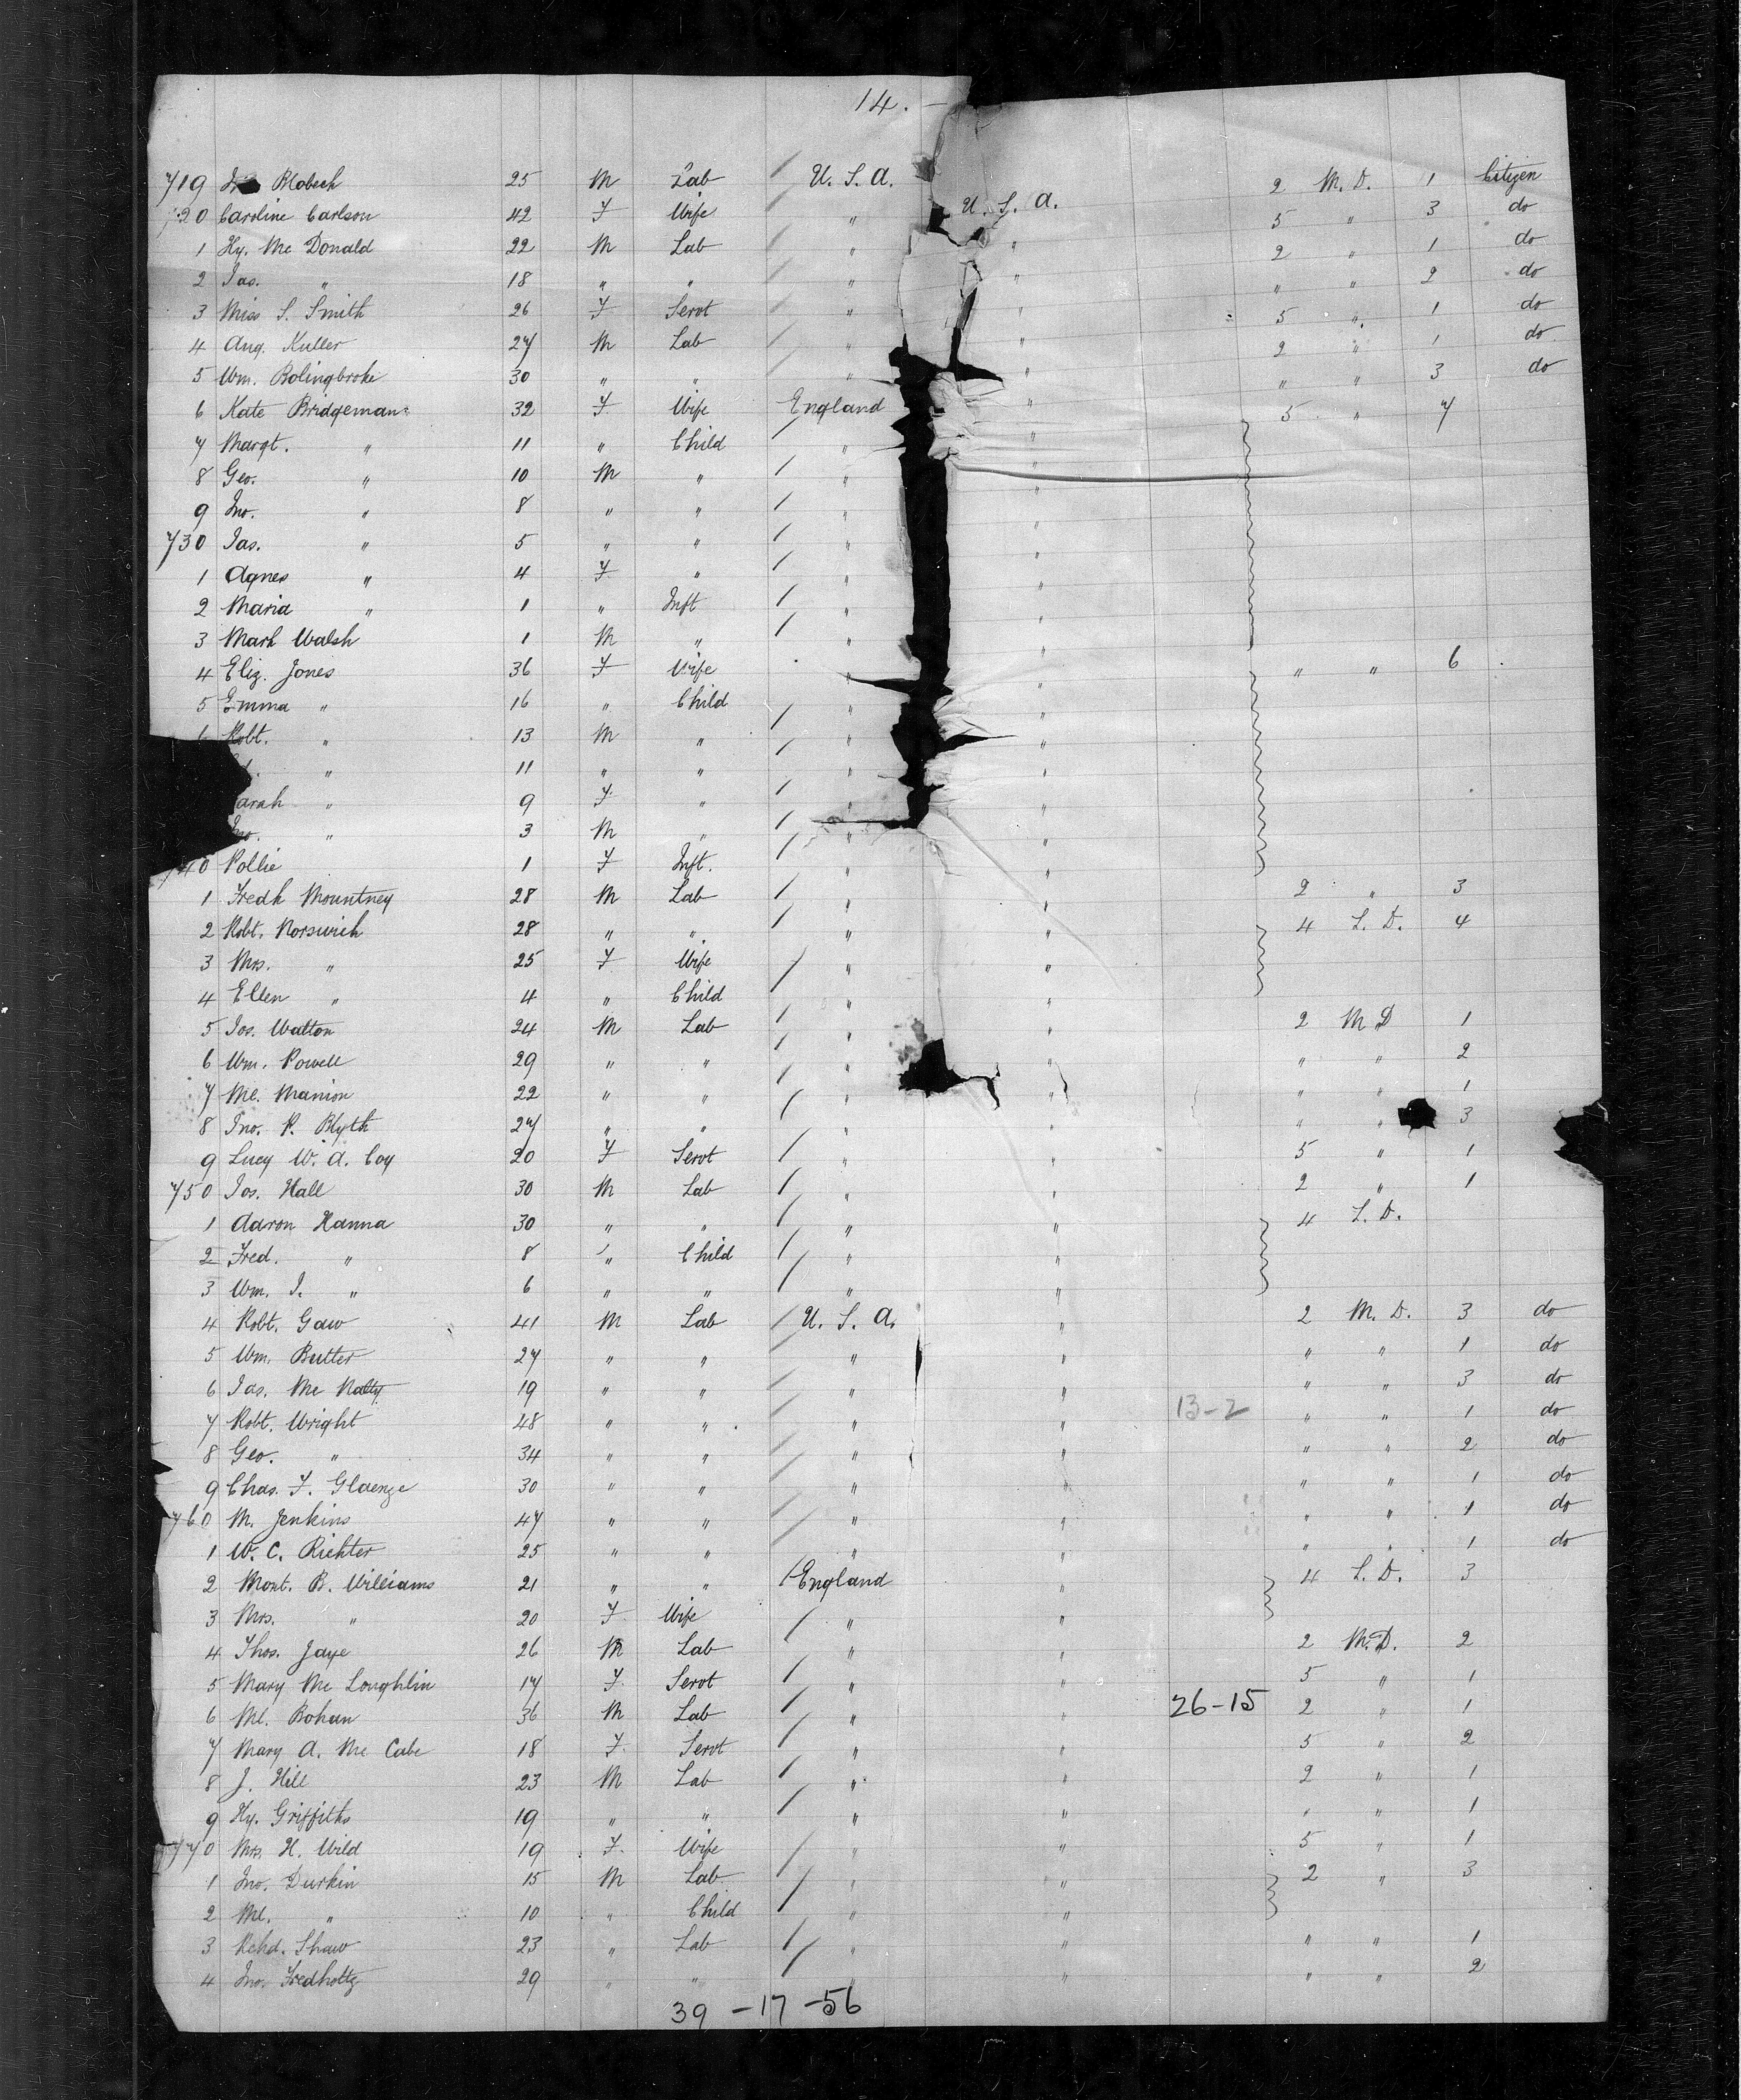 14. —
719 Blobech 25 M Lab / U. S. A. 2 M. D. 1 Citizen
720 Caroline Carlson 42 F Wife / " U. S. A. 5 " 3 do
1 Hy. Mc Donald 22 M Lab / " " 2 " 1 do
2 Jas. " 18 " " / " " " " 2 do
3 Miss S. Smith 26 F Servt / " " 5 " 1 do
4 Aug. Kuller 27 M Lab / " " 2 " 1 do
5 Wm. Bolingbroke 30 " " / " " " " 3 do
6 Kate Bridgeman 32 F Wife England " 5 " 7
7 Margt. " 11 " Child / " "
8 Geo. " 10 M " / " "
9 Jno. " 8 " " / " "
730 Jas. " 5 " " / " "
1 Agnes " 4 F " / " "
2 Maria " 1 " Inft / " "
3 Mark Walsh 1 M " / " "
4 Eliz. Jones 36 F Wife " " " " 6
5 Emma " 16 " Child / " "
6 Robt. " 13 M " / " "
" 11 " " / " "
Sarah " 9 F " / " "
Jno. " 3 M " / " "
740 Pollie 1 F Inft. / " "
1 Fredk Mountney 28 M Lab / " " 2 " 3
2 Robt. Norswich 28 " " / " " 4 S. D. 4
3 Mrs. " 25 F Wife / " "
4 Ellen " 4 " Child / " "
5 Jos. Watton 24 M Lab / " " 2 M D 1
6 Wm. Powell 29 " " / " " " " 2
7 Ml. Manion 22 " " / " " " " 1
8 Jno. P. Blyth 27 " " / " " " " 3
9 Lucy W. A. Coy 20 F Servt / " " 5 " 1
750 Jos. Hall 30 M Lab / " " 2 " 1
1 Aaron Hanna 30 " " / " " 4 S. D.
2 Fred. " 8 " Child / " "
3 Wm. J. " 6 " " / " "
4 Robt. Gaw 41 M Lab / U. S. A. " 2 M. D. 3 do
5 Wm. Butter 27 " " / " " " " 1 do
6 Jas. Mc Nalty 19 " " / " " " " 3 do
7 Robt. Wright 48 " " / " " 13-2 " " 1 do
8 Geo. " 34 " " / " " " " 2 do
9 Chas. F. Glaenze 30 " " / " " " " 1 do
760 M. Jenkins 47 " " / " " " " 1 do
1 W. C. Richter 25 " " / " " " " 1 do
2 Mont. B. Williams 21 " " / England " 4 S. D. 3
3 Mrs. " 20 F Wife / " "
4 Thos. Jaye 26 M Lab / " " 2 M. D. 2
5 Mary Mc Loughlin 17 F Servt / " " 5 " 1
6 Ml. Bohan 36 M Lab / " " 26-15 2 " 1
7 Mary A. Mc Cabe 18 F Servt / " " 5 " 2
8 J. Hill 23 M Lab / " " 2 " 1
9 Hy. Griffiths 19 " " / " " " " 1
770 Mrs H. Wild 19 F Wife / " " 5 " 1
1 Jno. Durkin 15 M Lab / " " 2 " 3
2 Ml. " 10 " Child / " "
3 Rchd. Shaw 23 " Lab / " " " " 1
4 Jno. Fredholtz 29 " " / " " " " 2
39 - 17 - 56